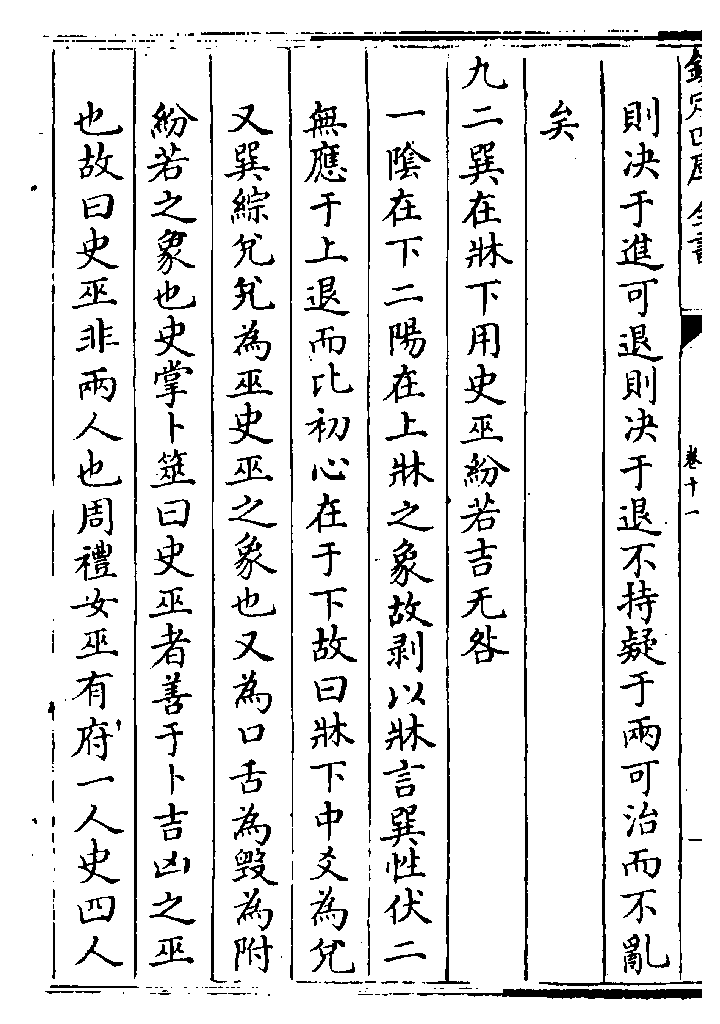 欽定四庫全書
卷十一
則决于進可退則决于退不持疑于兩可治而不亂
矣
九二巽在牀下用史巫紛若吉无咎
一陰在下二陽在上牀之象故剥以牀言巽性伏二
無應于上退而比初心在于下故曰牀下中爻為兌
又巽綜兌兌為巫史巫之象也又為口舌為毁為附
紛若之象也史掌卜筮曰史巫者善于卜吉凶之巫
也故曰史巫非兩人也周禮女巫有府一人史四人